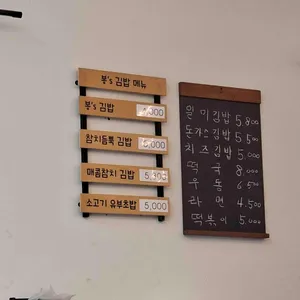 봉's 김밥 메뉴
봉's 김밥
참치듬뿍 김밥 5,000
매콤참치 김밥
소고기 유부초밥 5,000
김밥 5.800
돈가스김밥 5.500
치즈김밥 5.000
떡국 8.000
우동 6.500
라면 4.500
떡볶이 5.000